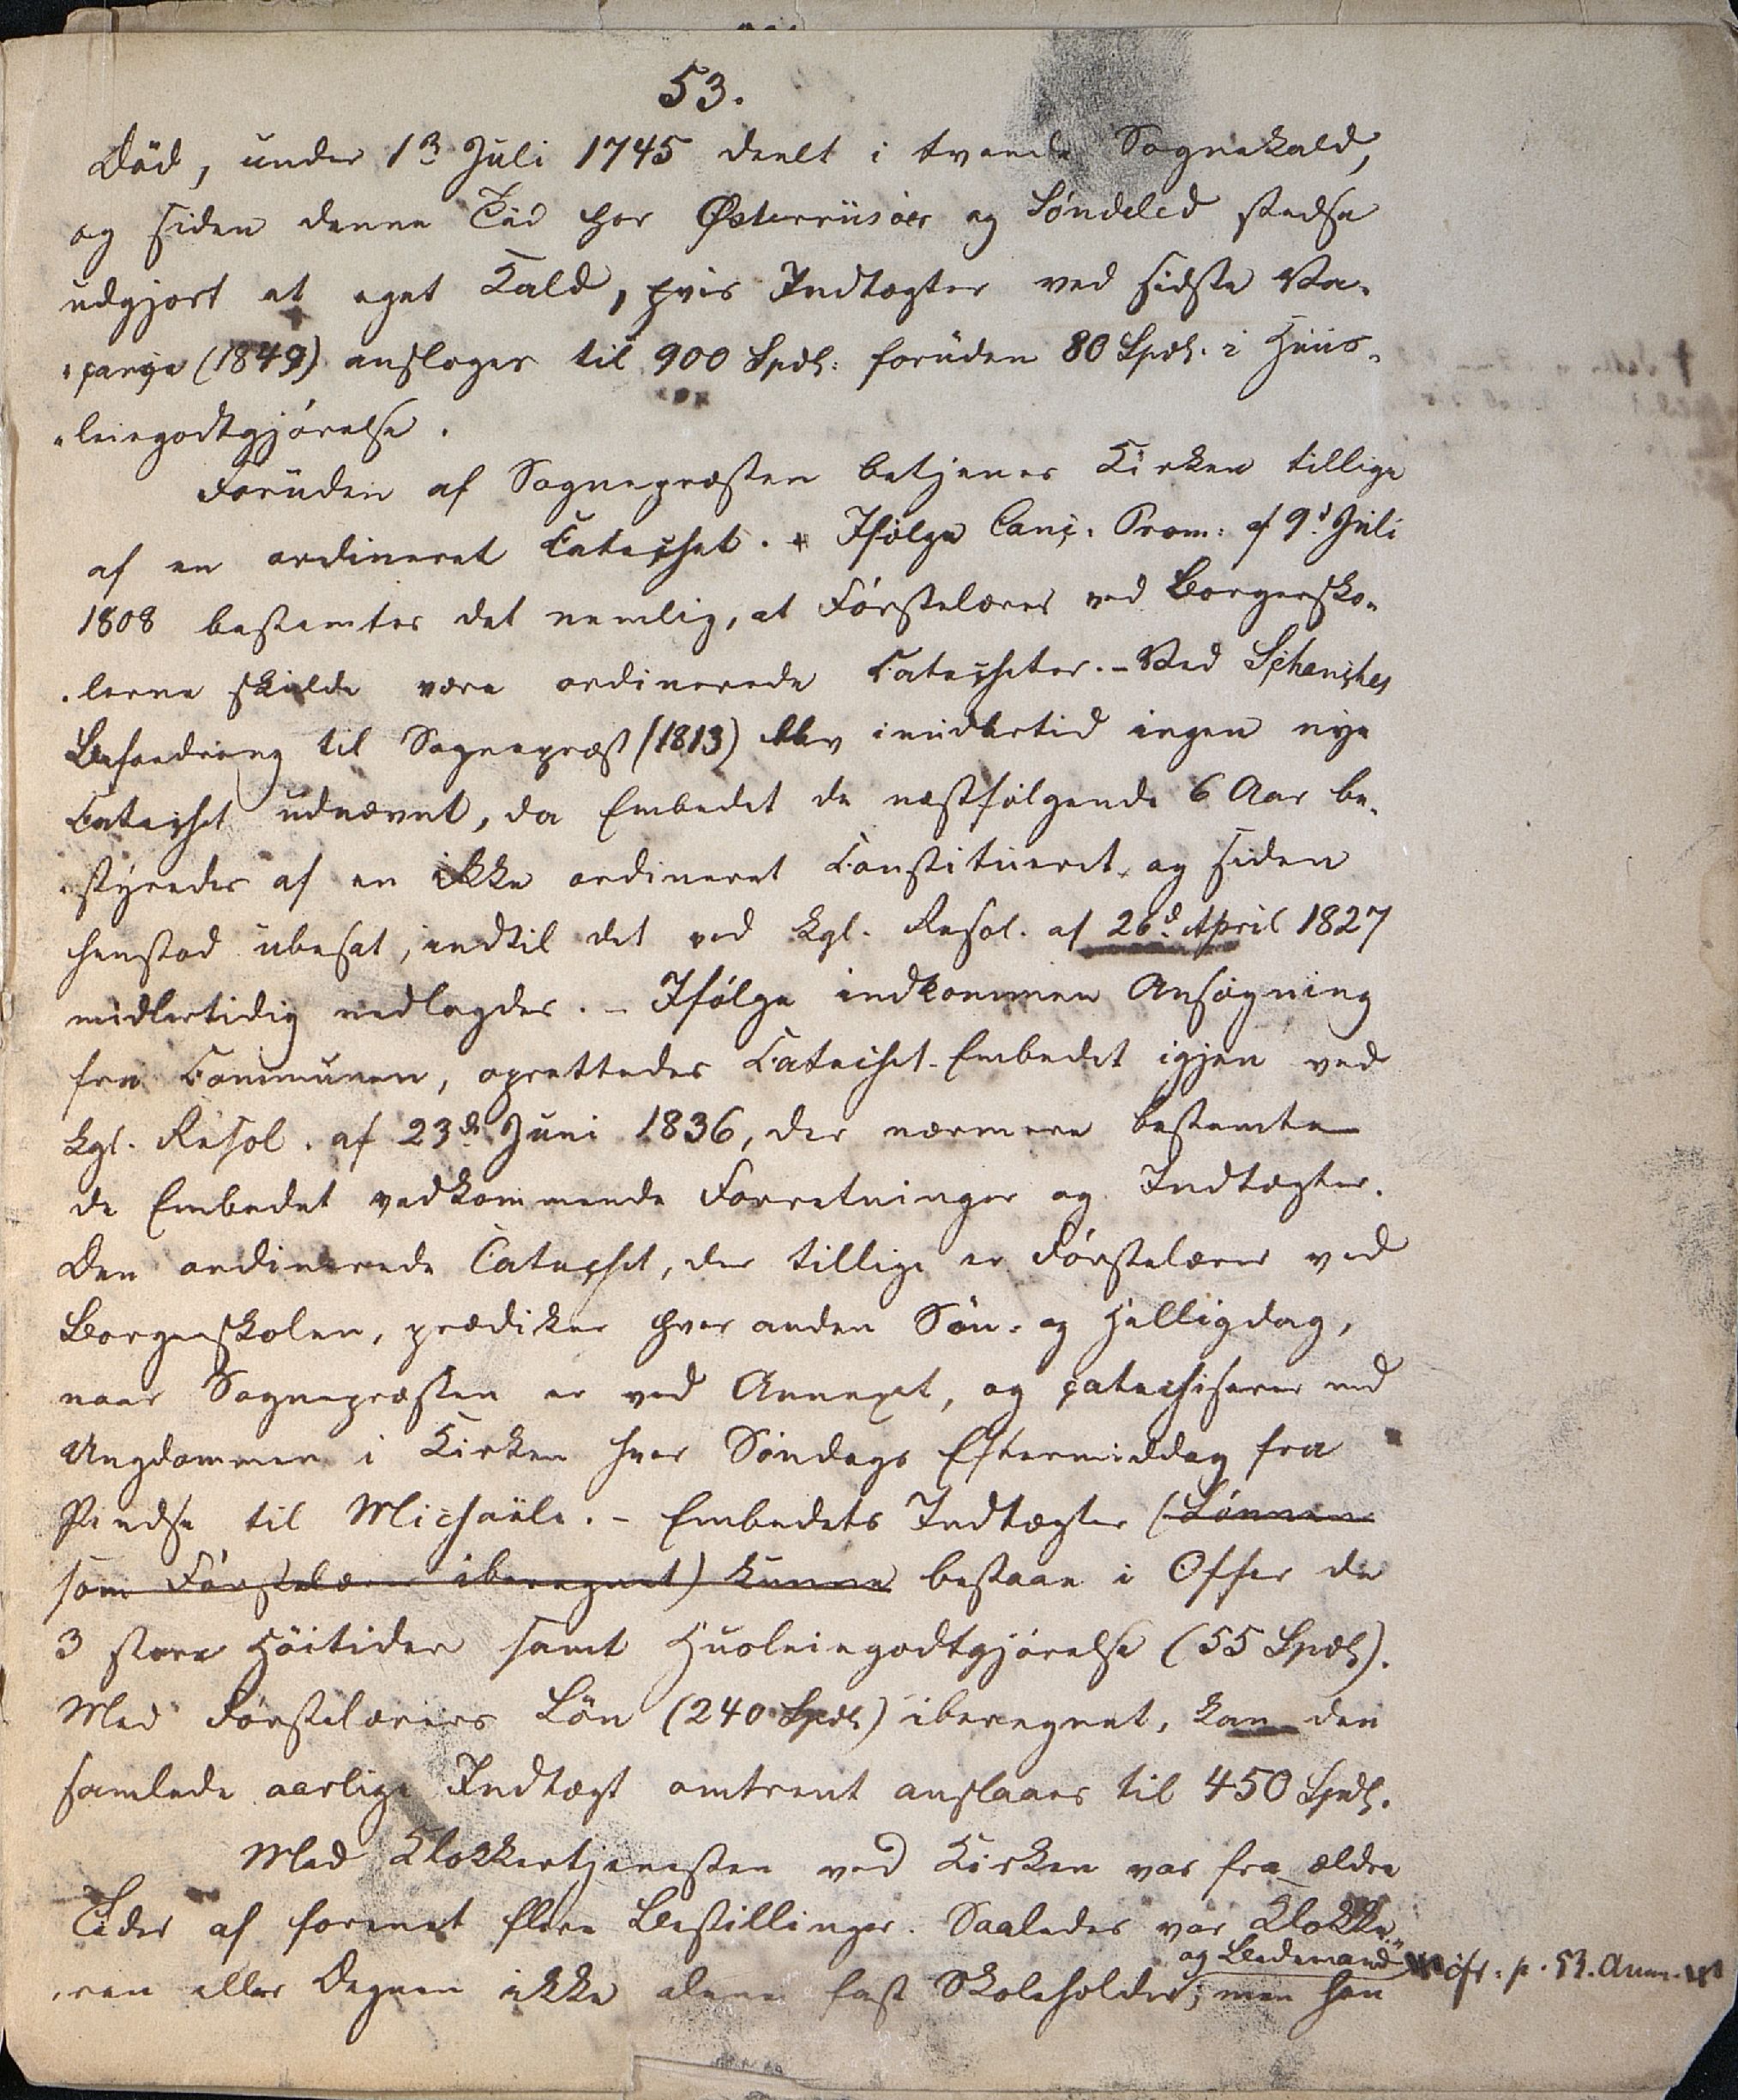 53.
Död, under 13 Juli 1745 deelt i tvende Sognekald,
og siden denne Tid har Østerriisöer og Söndeled stedse
udgjort et eget Kald, hvis Indtægter ved sidste Va-
-cance (1849) ansloges til 900 Spdl: foruden 80 Spdl. i Huus-
-leiegodtgjörelse.
Foruden af Sognepræsten betjenes Kirken tillige
af en ordineret Catechet. + Ifölge Canc. Prom: af 9d Juli
1808 bestemtes det nemlig, at Förstelærer ved Borgersko-
-lerne skulde være ordinerede Catecheter. - Ved Schenches
Befordring til Sognepræst (1813) blev imidlertid ingen nye
Catechet udnævnt, da Embedet de næstfölgende 6 Aar be-
-styredes af en ikke ordineret Constitueret, og siden
henstod ubesat, indtil det ved kgl. Resol. af 26d April 1827
midlertidig nedlagdes. - Ifölge indkommen Ansögning
fra Communen, oprettedes Catechet-Embedet igjen ved
kgl. Resol. af 23de Juni 1836, der nærmere bestemte
de Embedet vedkommende Forretninger og Indtægter.
Den ordinerede Catechet, der tillige er Förstelærer ved
Borgerskolen, prædiker hver anden Sön- og Helligdag,
naar Sognepræsten er ved Annexet, og catechiserer med
Ungdommen i Kirken hver Söndags Eftermiddag fra
Pindse til Michaële. - Embedets Indtægter (Lönnen
som Förstelærer iberegnet) kunne bestaae i Offer de
3 store Höitider samt Huusleiegodtgjörelse (55 Spdl).
Med Förstelærers Lön (240 Spdl) iberegnet, kan den
samlede aarlige Indtægt omtrent anslaaes til 450 Spdl.
Med Klokkertjenesten ved Kirken var fra ældre
Tider af forenet flere Bestillinger. Saaledes var Klokke-
og Bedemand cfr. p. 53. Anm.
-ren eller Degnen ikke alene fast Skoleholder; men han